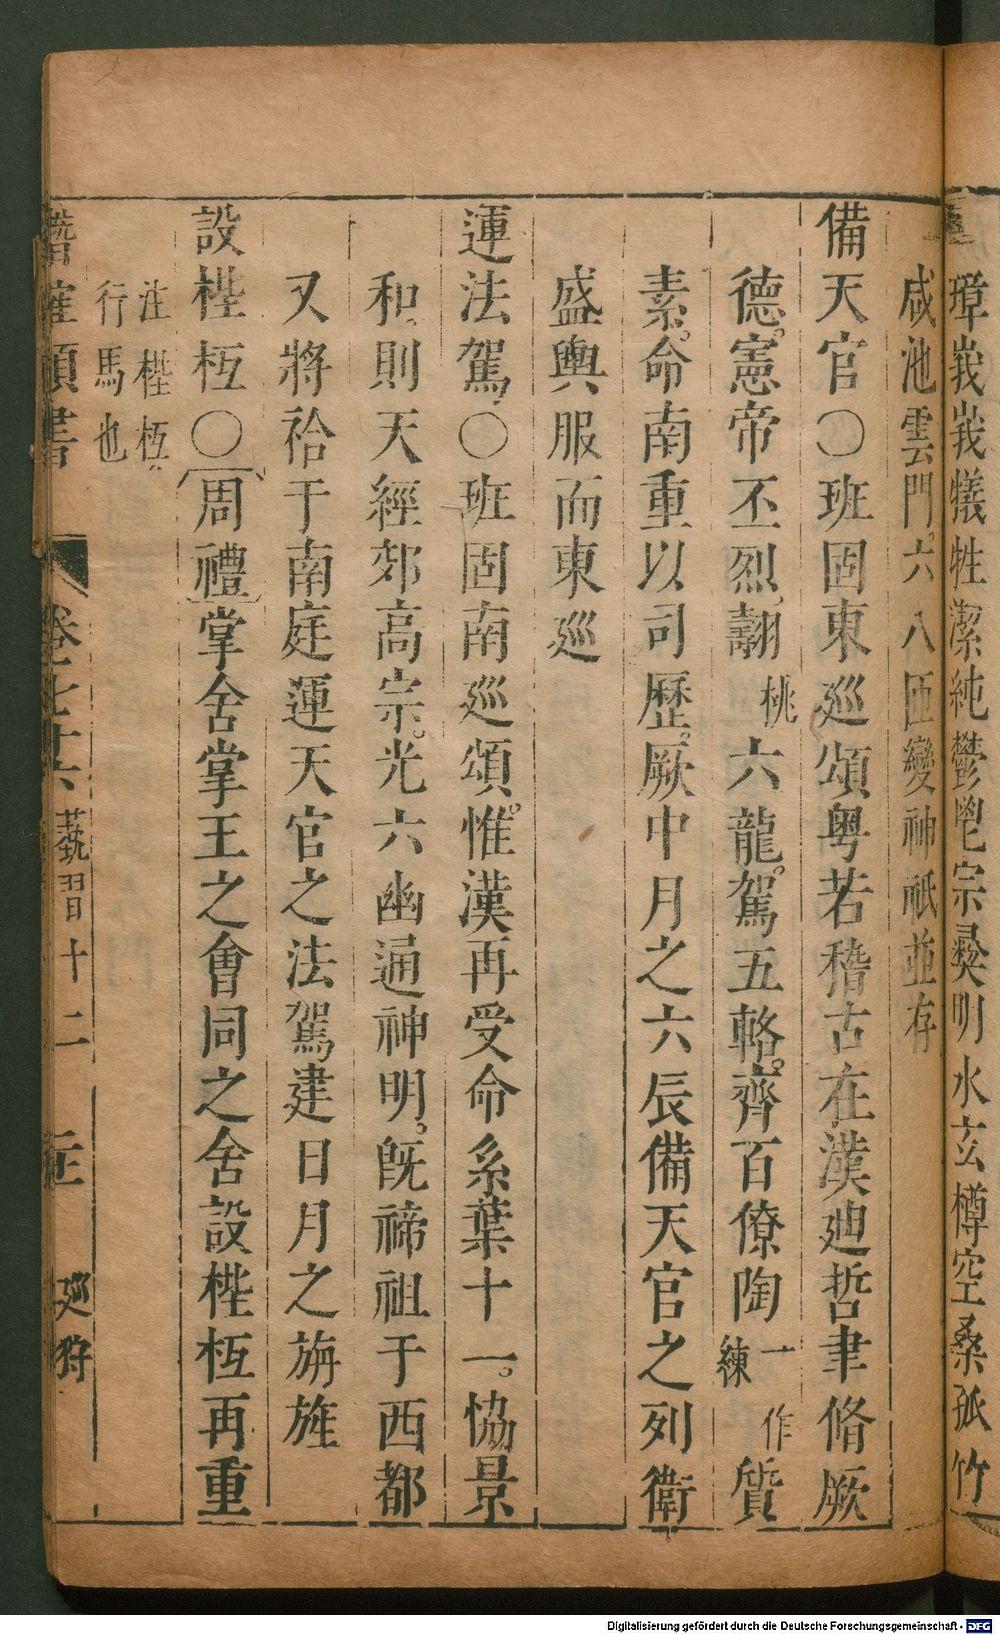 璋峩峩犧牲潔純鬱鬯宗彜明水玄樽空桑孤竹
咸池雲門六八匝變神祇並存
備天官○班固東廵頌粤若稽古在漢廸哲聿脩厥
德憲帝丕烈翿桃六龍駕五輅齊百僚陶一作練質
素命南重以司歷厥中月之六辰備天官之列衛
盛輿服而東廵
運法駕○班固南廵頌惟漢再受命系葉十一恊景
和則天經郊高宗光六幽通神明旣禘祖于西都
又將祫于南庭運天官之法駕建日月之旃旌
設梐枑○周禮掌舍掌王之會同之舍設梐枑再重
注梐枑
行馬也
潛確類書 卷七十六 蓺習十二 廵狩
Digitalisierung gefördert durch die Deutsche Forschungsgemeinschaft - DFG